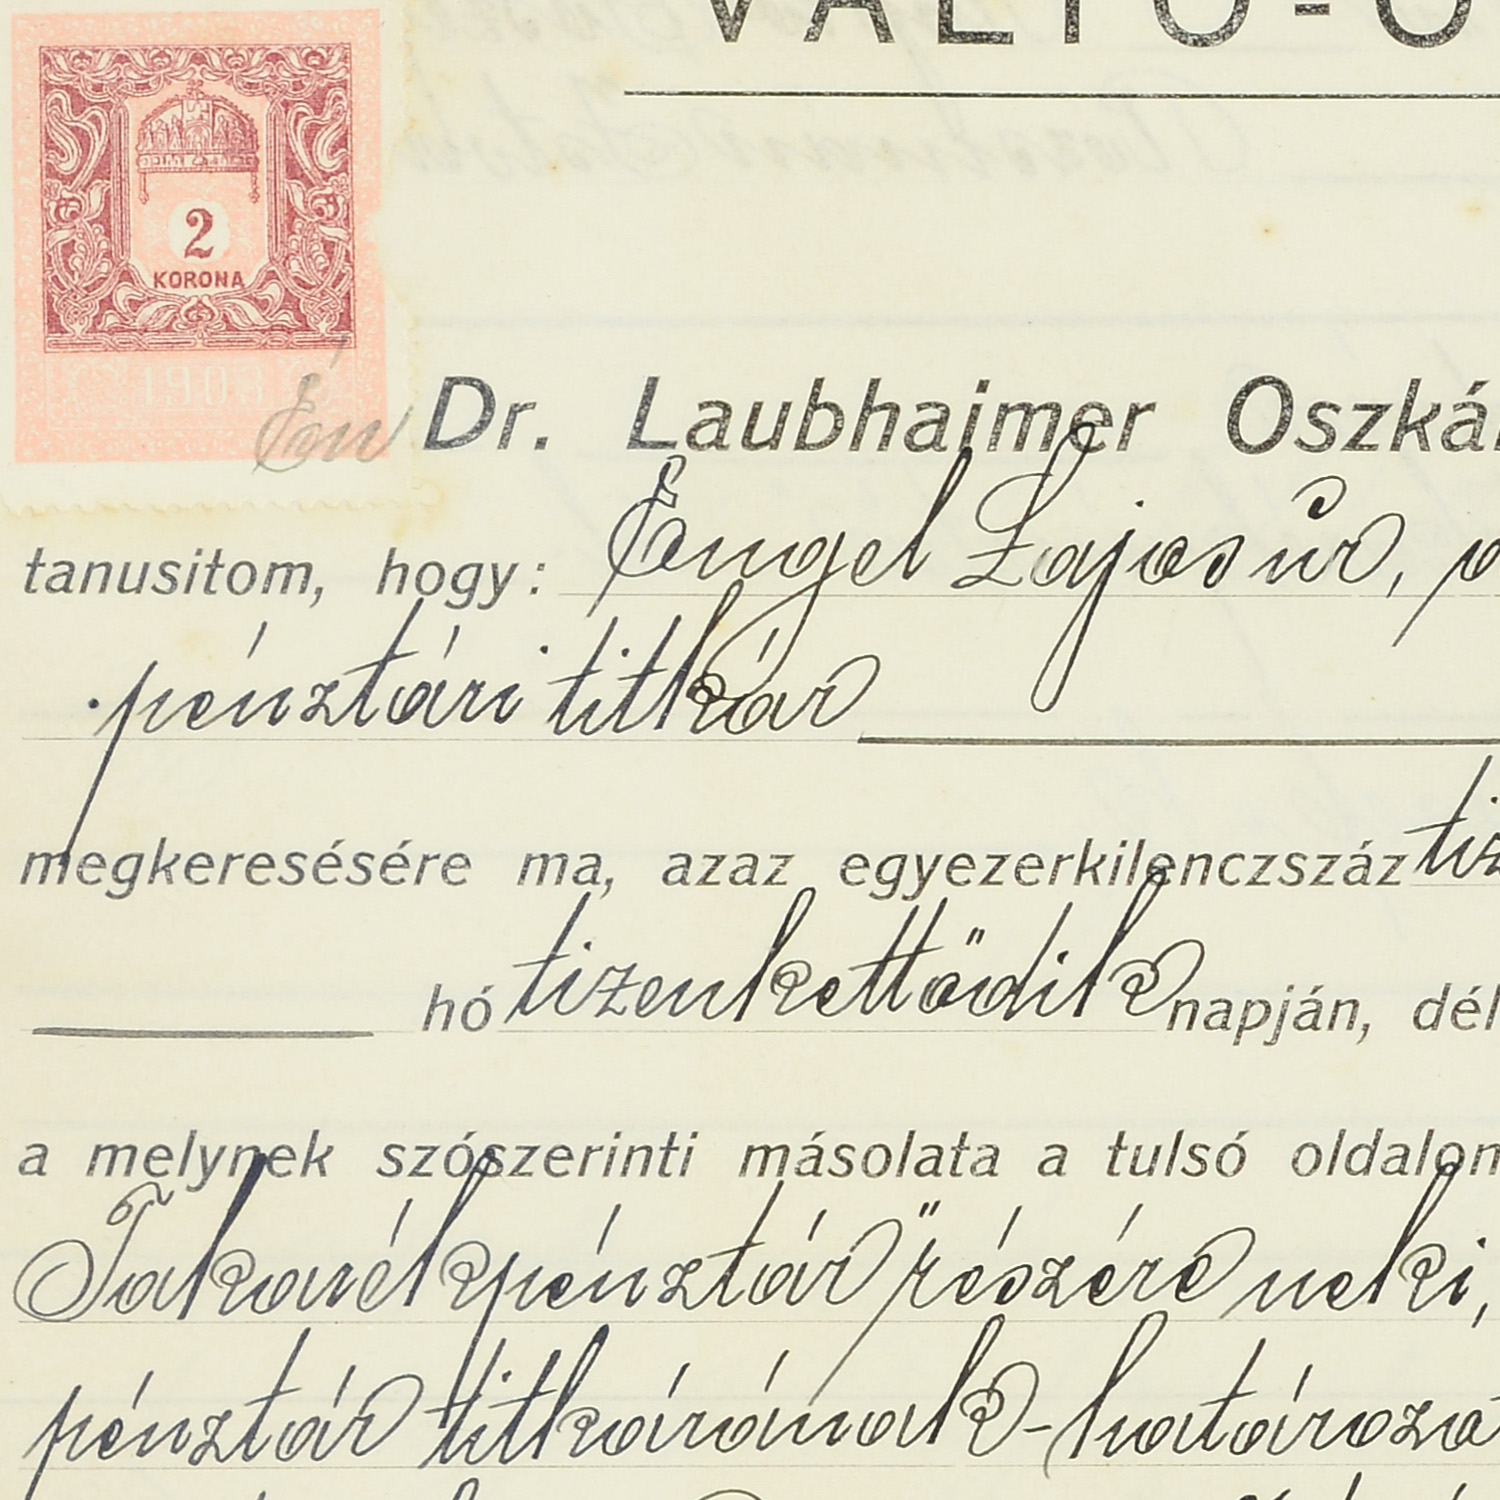 VÁLTÓ-Ó
2
KORONA
1903
Én Dr. Laubhaimer Oszkár
tanusitom, hogy: Engel Lajos úr,
pénztári titkár
megkeresésére ma, azaz egyezerkilenczszáz tiz
hó tizenkettödik napján, dél
a melynek szószerinti másolata a tulsó oldalon
Takarékpénztár" részére neki,
pénztár titkárának-határoza